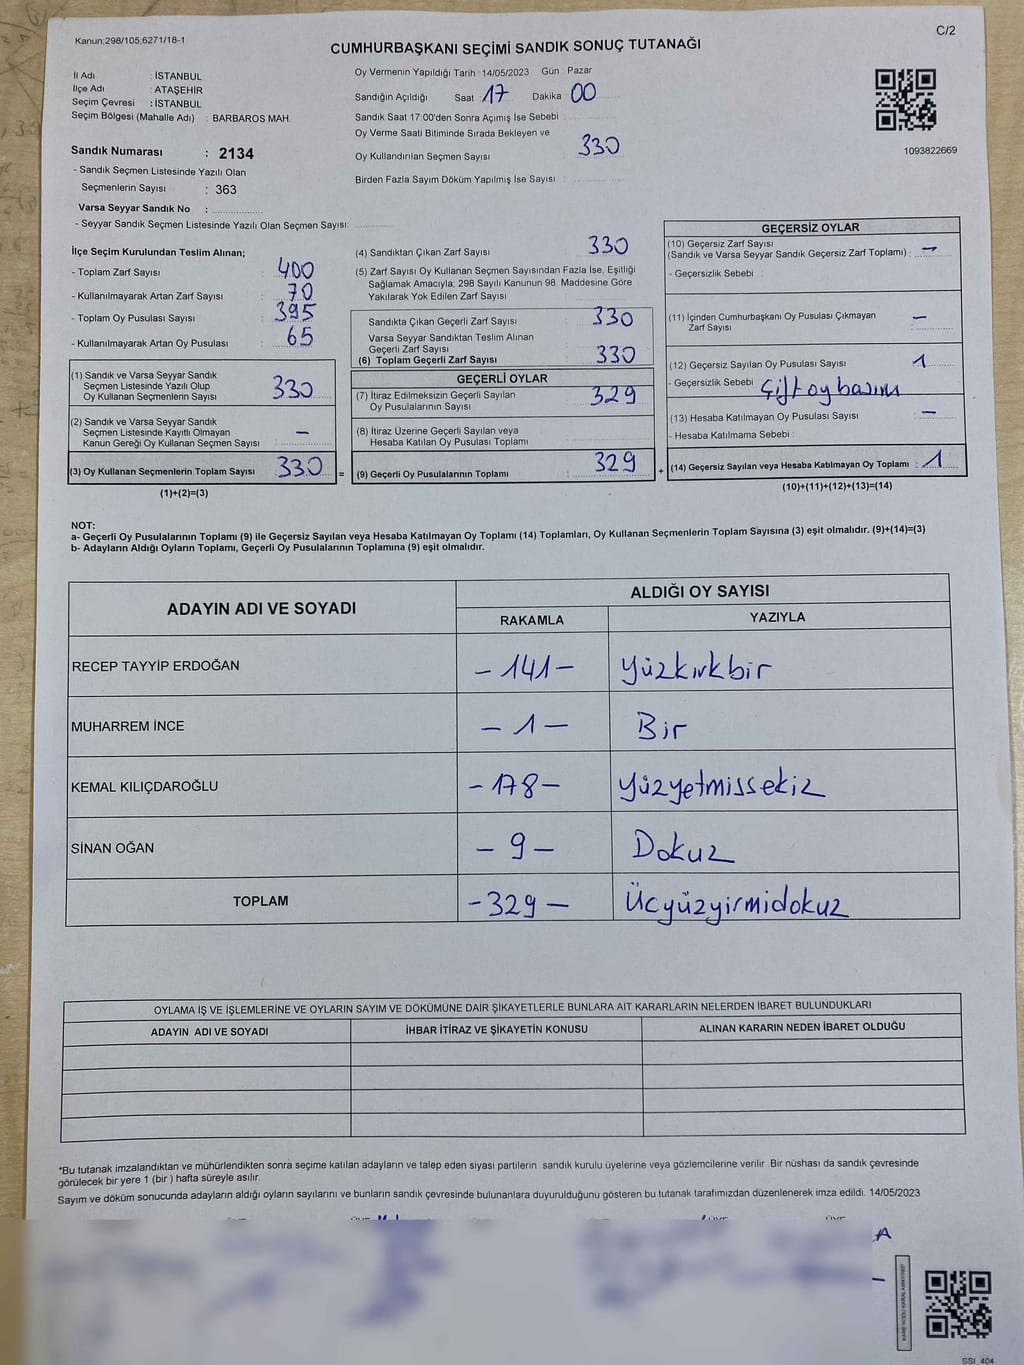 Kanun;298/105;6271/18-1
C/2
CUMHURBAŞKANI SEÇİMİ SANDIK SONUÇ TUTANAĞI
İl Adı : İSTANBUL
İlçe Adı : ATAŞEHİR
Seçim Çevresi : İSTANBUL
Seçim Bölgesi (Mahalle Adı) : BARBAROS MAH.
Sandık Numarası : 2134
- Sandık Seçmen Listesinde Yazılı Olan
Seçmenlerin Sayısı : 363
Varsa Seyyar Sandık No :
- Seyyar Sandık Seçmen Listesinde Yazılı Olan Seçmen Sayısı:
Oy Vermenin Yapıldığı Tarih : 14/05/2023 Gün : Pazar
Sandığın Açıldığı Saat : 17 Dakika : 00
Sandık Saat 17:00'den Sonra Açımış İse Sebebi :
Oy Verme Saati Bitiminde Sırada Bekleyen ve
Oy Kullandırılan Seçmen Sayısı : 330
Birden Fazla Sayım Döküm Yapılmış İse Sayısı :
1093822669
İlçe Seçim Kurulundan Teslim Alınan;
- Toplam Zarf Sayısı : 400
- Kullanılmayarak Artan Zarf Sayısı : 70
- Toplam Oy Pusulası Sayısı : 395
- Kullanılmayarak Artan Oy Pusulası : 65
(1) Sandık ve Varsa Seyyar Sandık
Seçmen Listesinde Yazılı Olup
Oy Kullanan Seçmenlerin Sayısı : 330
(2) Sandık ve Varsa Seyyar Sandık
Seçmen Listesinde Kayıtlı Olmayan
Kanun Gereği Oy Kullanan Seçmen Sayısı : –
(3) Oy Kullanan Seçmenlerin Toplam Sayısı : 330
(1)+(2)=(3)
(4) Sandıktan Çıkan Zarf Sayısı : 330
(5) Zarf Sayısı Oy Kullanan Seçmen Sayısından Fazla İse, Eşitliği
Sağlamak Amacıyla; 298 Sayılı Kanunun 98. Maddesine Göre
Yakılarak Yok Edilen Zarf Sayısı :
Sandıkta Çıkan Geçerli Zarf Sayısı : 330
Varsa Seyyar Sandıktan Teslim Alınan
Geçerli Zarf Sayısı :
(6) Toplam Geçerli Zarf Sayısı : 330
GEÇERLİ OYLAR
(7) İtiraz Edilmeksizin Geçerli Sayılan
Oy Pusulalarının Sayısı : 329
(8) İtiraz Üzerine Geçerli Sayılan veya
Hesaba Katılan Oy Pusulası Toplamı :
= (9) Geçerli Oy Pusulalarının Toplamı : 329
GEÇERSİZ OYLAR
(10) Geçersiz Zarf Sayısı
(Sandık ve Varsa Seyyar Sandık Geçersiz Zarf Toplamı) : –
- Geçersizlik Sebebi :
(11) İçinden Cumhurbaşkanı Oy Pusulası Çıkmayan
Zarf Sayısı : –
(12) Geçersiz Sayılan Oy Pusulası Sayısı : 1
- Geçersizlik Sebebi : Çift oy basımı
(13) Hesaba Katılmayan Oy Pusulası Sayısı : –
- Hesaba Katılmama Sebebi :
+ (14) Geçersiz Sayılan veya Hesaba Katılmayan Oy Toplamı : 1
(10)+(11)+(12)+(13)=(14)
NOT:
a- Geçerli Oy Pusulalarının Toplamı (9) ile Geçersiz Sayılan veya Hesaba Katılmayan Oy Toplamı (14) Toplamları, Oy Kullanan Seçmenlerin Toplam Sayısına (3) eşit olmalıdır. (9)+(14)=(3)
b- Adayların Aldığı Oyların Toplamı, Geçerli Oy Pusulalarının Toplamına (9) eşit olmalıdır.
ADAYIN ADI VE SOYADI
ALDIĞI OY SAYISI
RAKAMLA YAZIYLA
RECEP TAYYİP ERDOĞAN – 141 – yüzkırkbir
MUHARREM İNCE – 1 – Bir
KEMAL KILIÇDAROĞLU – 178 – yüzyetmissekiz
SİNAN OĞAN – 9 – Dokuz
TOPLAM – 329 – Ücyüzyirmidokuz
OYLAMA İŞ VE İŞLEMLERİNE VE OYLARIN SAYIM VE DÖKÜMÜNE DAİR ŞİKAYETLERLE BUNLARA AİT KARARLARIN NELERDEN İBARET BULUNDUKLARI
ADAYIN ADI VE SOYADI İHBAR İTİRAZ VE ŞİKAYETİN KONUSU ALINAN KARARIN NEDEN İBARET OLDUĞU
*Bu tutanak imzalandıktan ve mühürlendikten sonra seçime katılan adayların ve talep eden siyasi partilerin sandık kurulu üyelerine veya gözlemcilerine verilir. Bir nüshası da sandık çevresinde
görülecek bir yere 1 (bir) hafta süreyle asılır.
Sayım ve döküm sonucunda adayların aldığı oyların sayılarını ve bunların sandık çevresinde bulunanlara duyurulduğunu gösteren bu tutanak tarafımızdan düzenlenerek imza edildi. 14/05/2023
SSİ_404